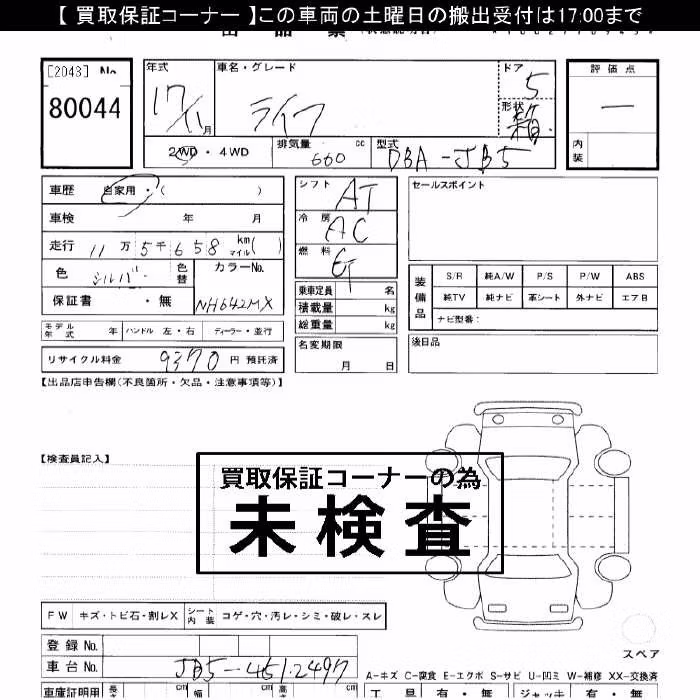 【 買取保証コーナー 】この車両の土曜日の搬出受付は17:00まで
[2043] No
80044
年式 車名・グレード ドア 評価点
17/11月 ライフ 5 —
形状 箱
2WD・4WD 排気量 660 cc 型式 DBA-JB5 内装
車歴 自家用・( )
シフト AT
セールスポイント
車検 年 月
冷房 AC
走行 11万5千658km マイル( )
燃料 G
色 シルバー 色替 カラーNo.
NH642MX
保証書 ・無
乗車定員 名
積載量 kg
総重量 kg
装備品 S/R 純A/W P/S P/W ABS
純TV 純ナビ 革シート 外ナビ エアB
ナビ型番：
モデル年式 年 ハンドル 左・右 ディーラー・並行
名変期限
月 日
後日品
リサイクル料金 9370 円 預託済
【出品店申告欄(不良箇所・欠品・注意事項等)】
【検査員記入】
買取保証コーナーの為
未検査
FW キズ・トビ石・割レX シート内装 コゲ・穴・汚レ・シミ・破レ・スレ
登録No.
スペア
車台No. JB5-4512497
A-キズ C-腐食 E-エクボ S-サビ U-凹ミ W-補修 XX-交換済
車庫証明用 長さ cm 幅 cm 高さ cm 工具 有・無 ジャッキ 有・無